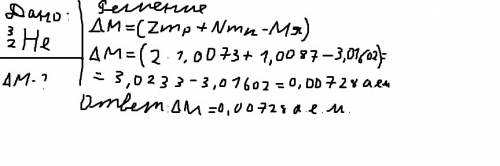 Дано: Решение
³₂He ΔM=(Zmp+Nmn-Mя)
ΔM=(2·1,0073+1,0087-3,01602)=
ΔM-? =3,0233-3,01602=0,00728 а ем
Ответ: ΔM=0,00728 а.е.м.